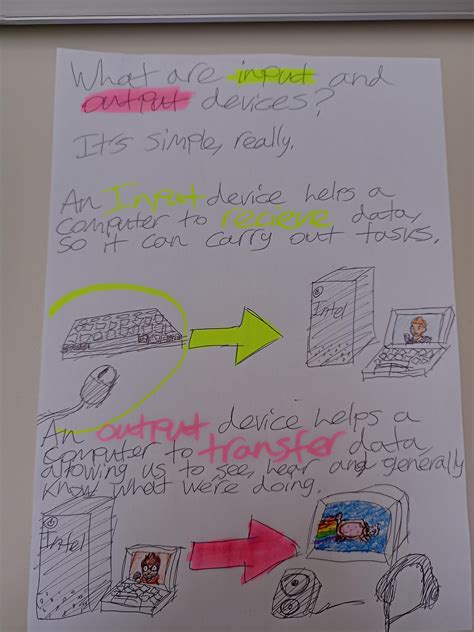 What are input and
output devices?
It's simple, really.
An Input device helps a
computer to recieve data,
so it can carry out tasks.
Intel
An output device helps a
computer to transfer data,
allowing us to see, hear and generally
know what we're doing.
Intel